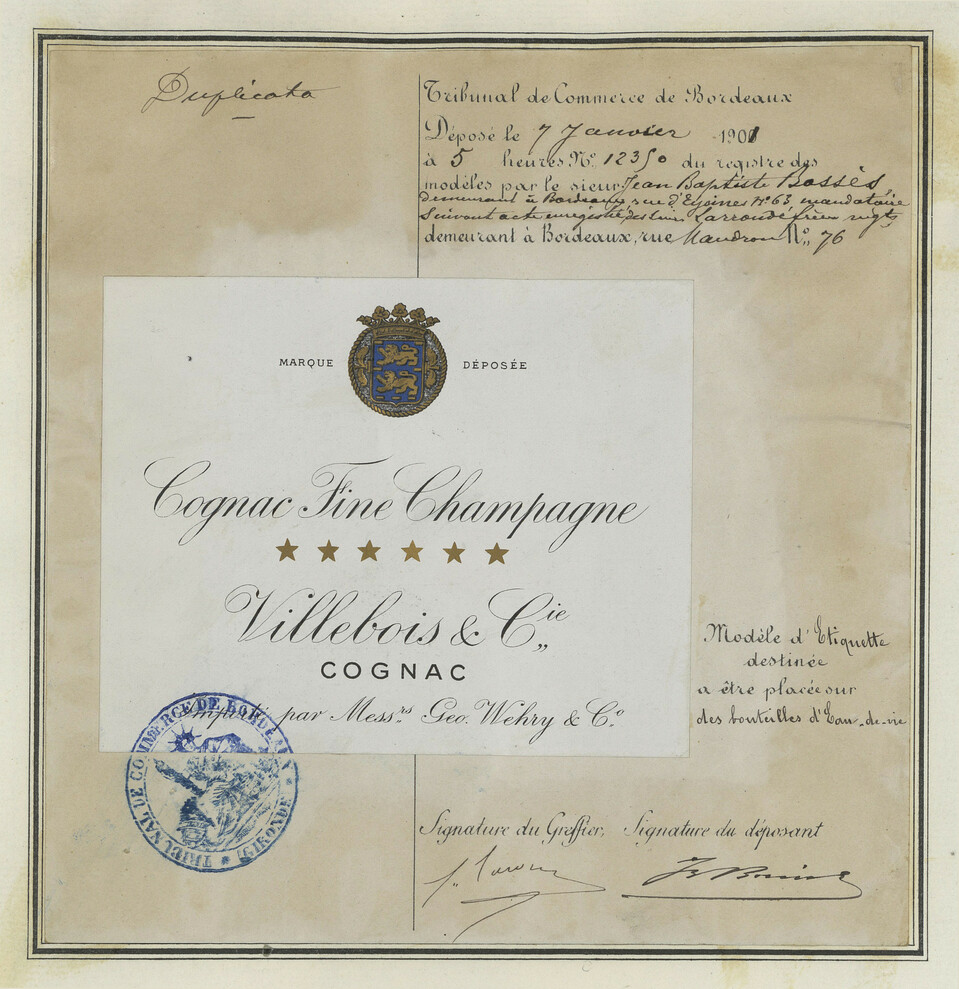 Duplicata
Tribunal de Commerce de Bordeaux
Déposé le 7 Janvier 1901
à 5 heures No. 12350 du registre des
modèles par le sieur Jean Baptiste Bossès
demeurant à Bordeaux rue d'Eysines No 63, mandataire
Suivant acte enregistré des sieurs Larrondé frères negts
demeurant à Bordeaux, rue Mandron No. 76
MARQUE DÉPOSÉE
Cognac Fine Champagne
Villebois & Cie
COGNAC
Importé par Messrs Geo. Wehry & Co
Modèle d'Etiquette
destinée
a être placée sur
des bouteilles d'Eau-de-vie
TRIBUNAL DE COMMERCE DE BORDEAUX
(GIRONDE)
Signature du Greffier, Signature du déposant